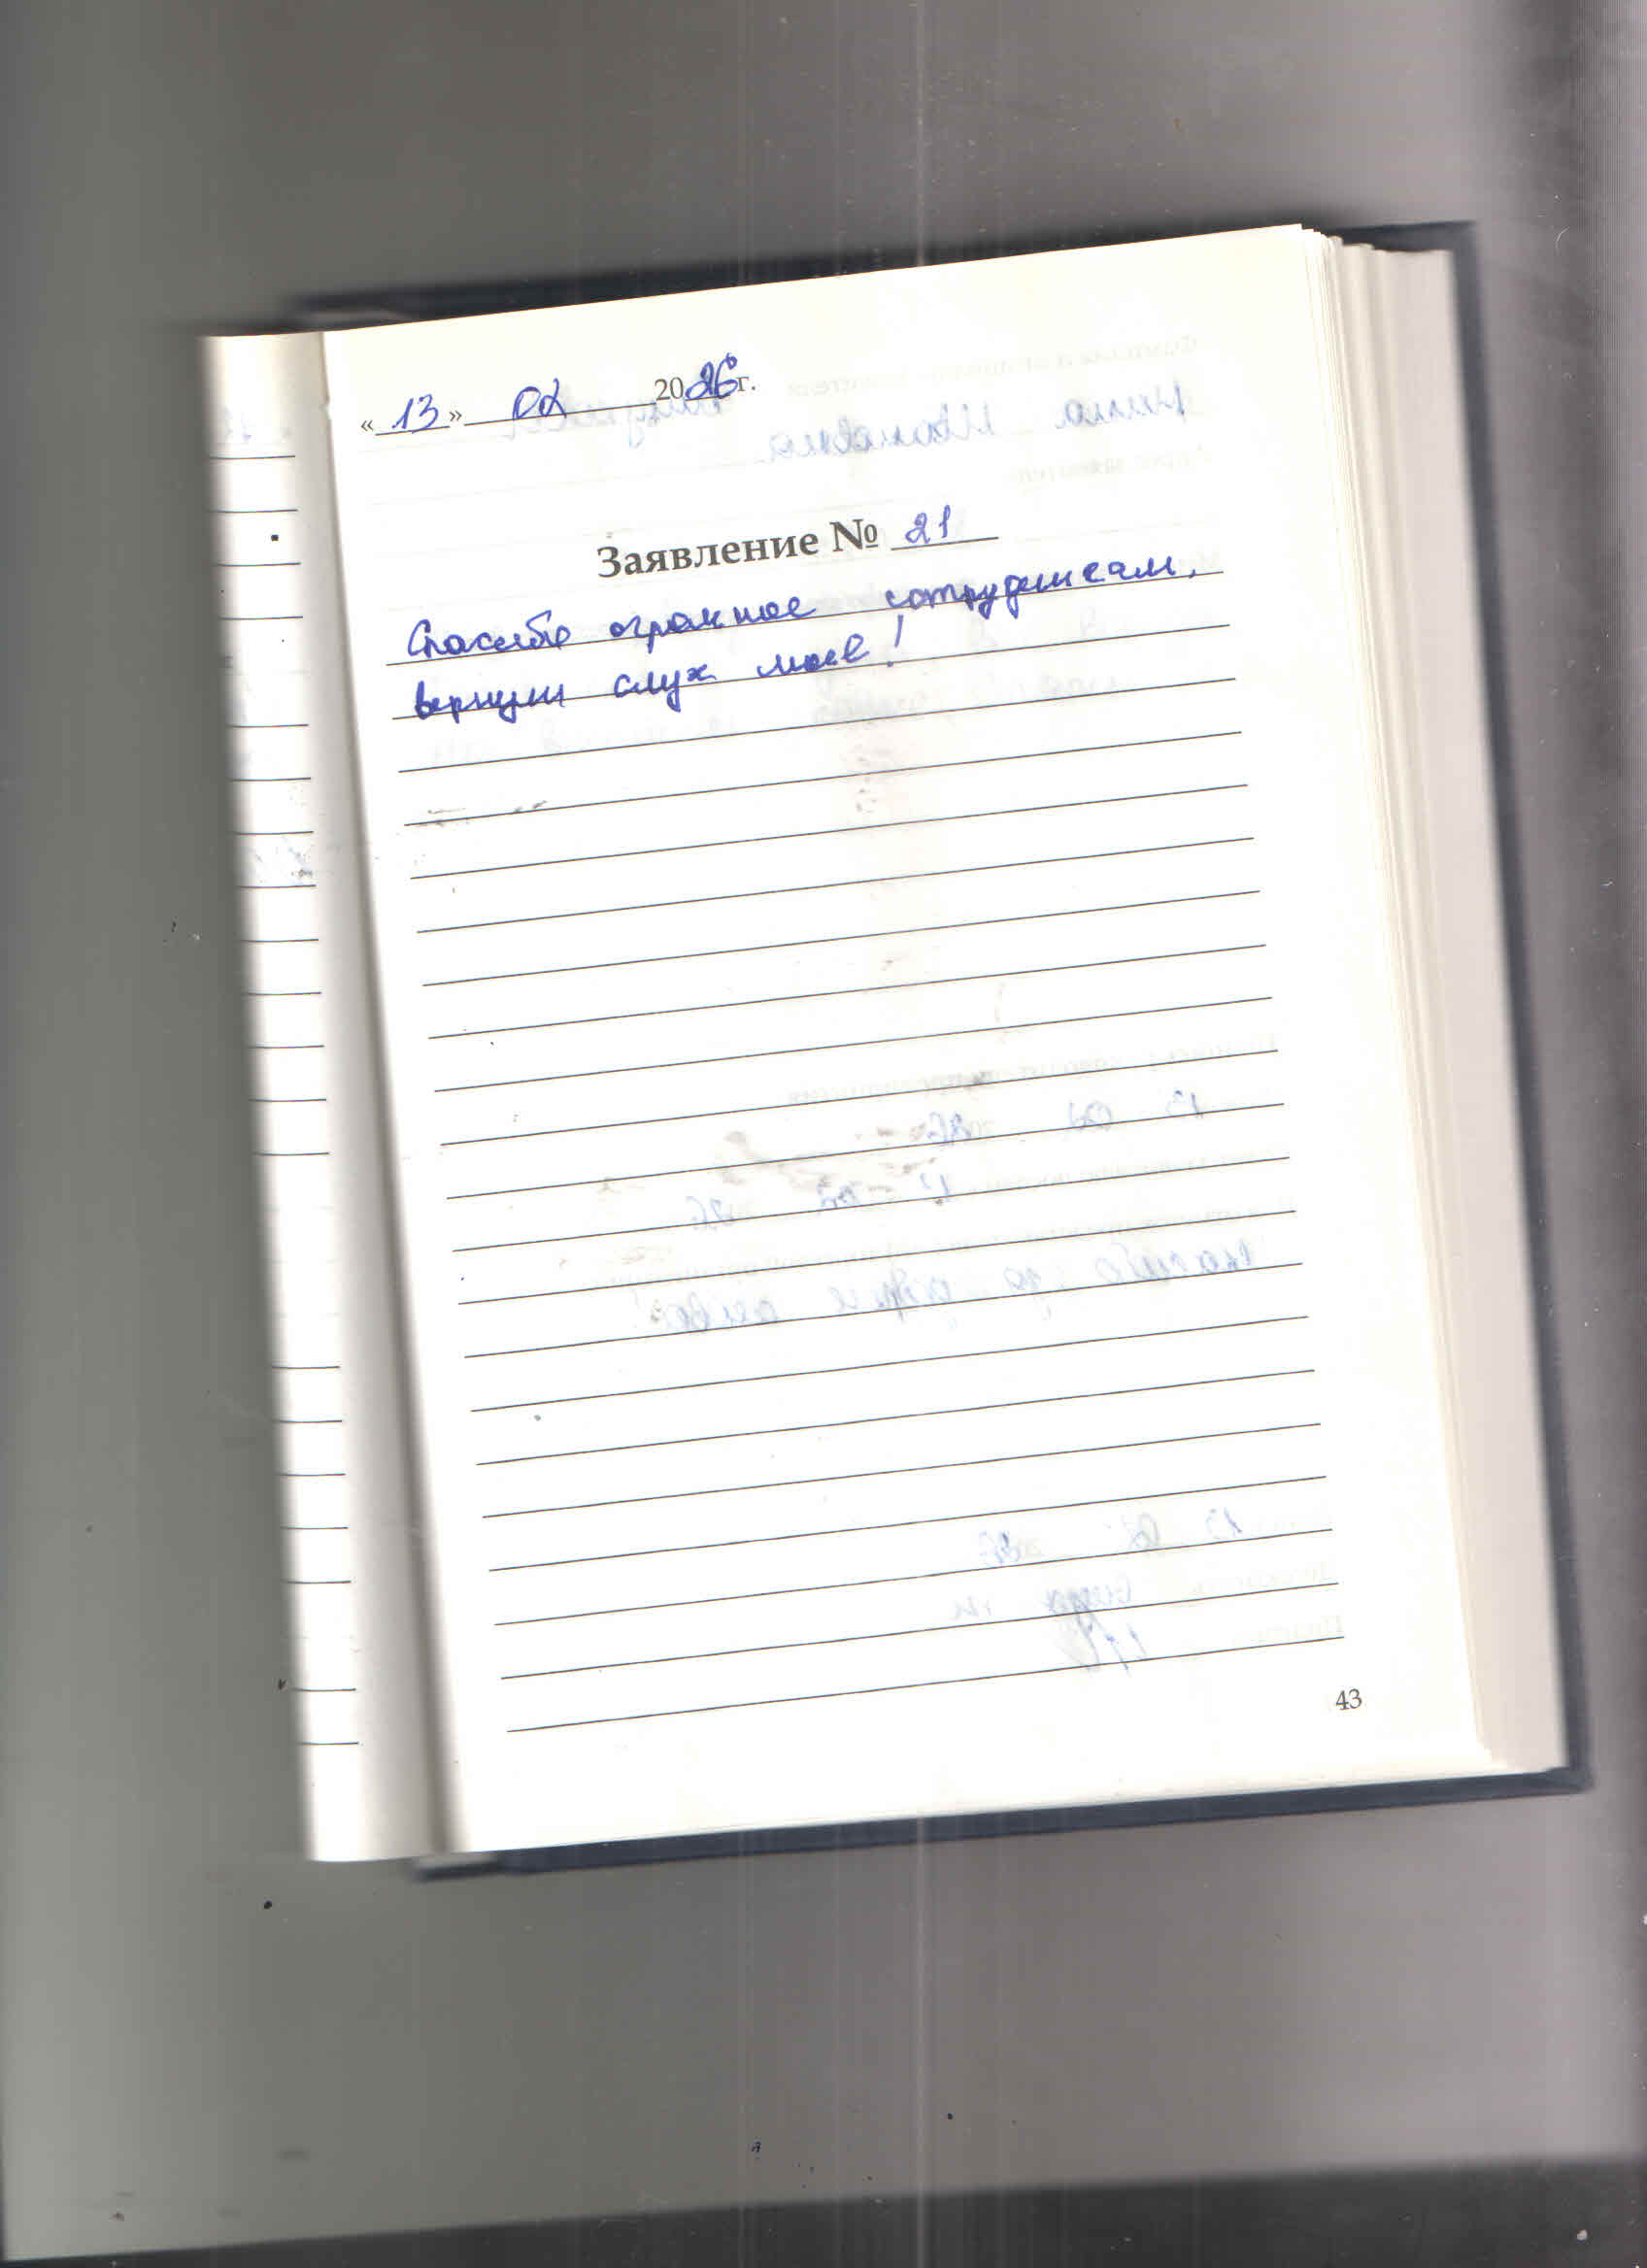 «13» 02 2026 г.
Заявление № 21
Спасибо огромное сотрудникам,
вернули слух мне!
43